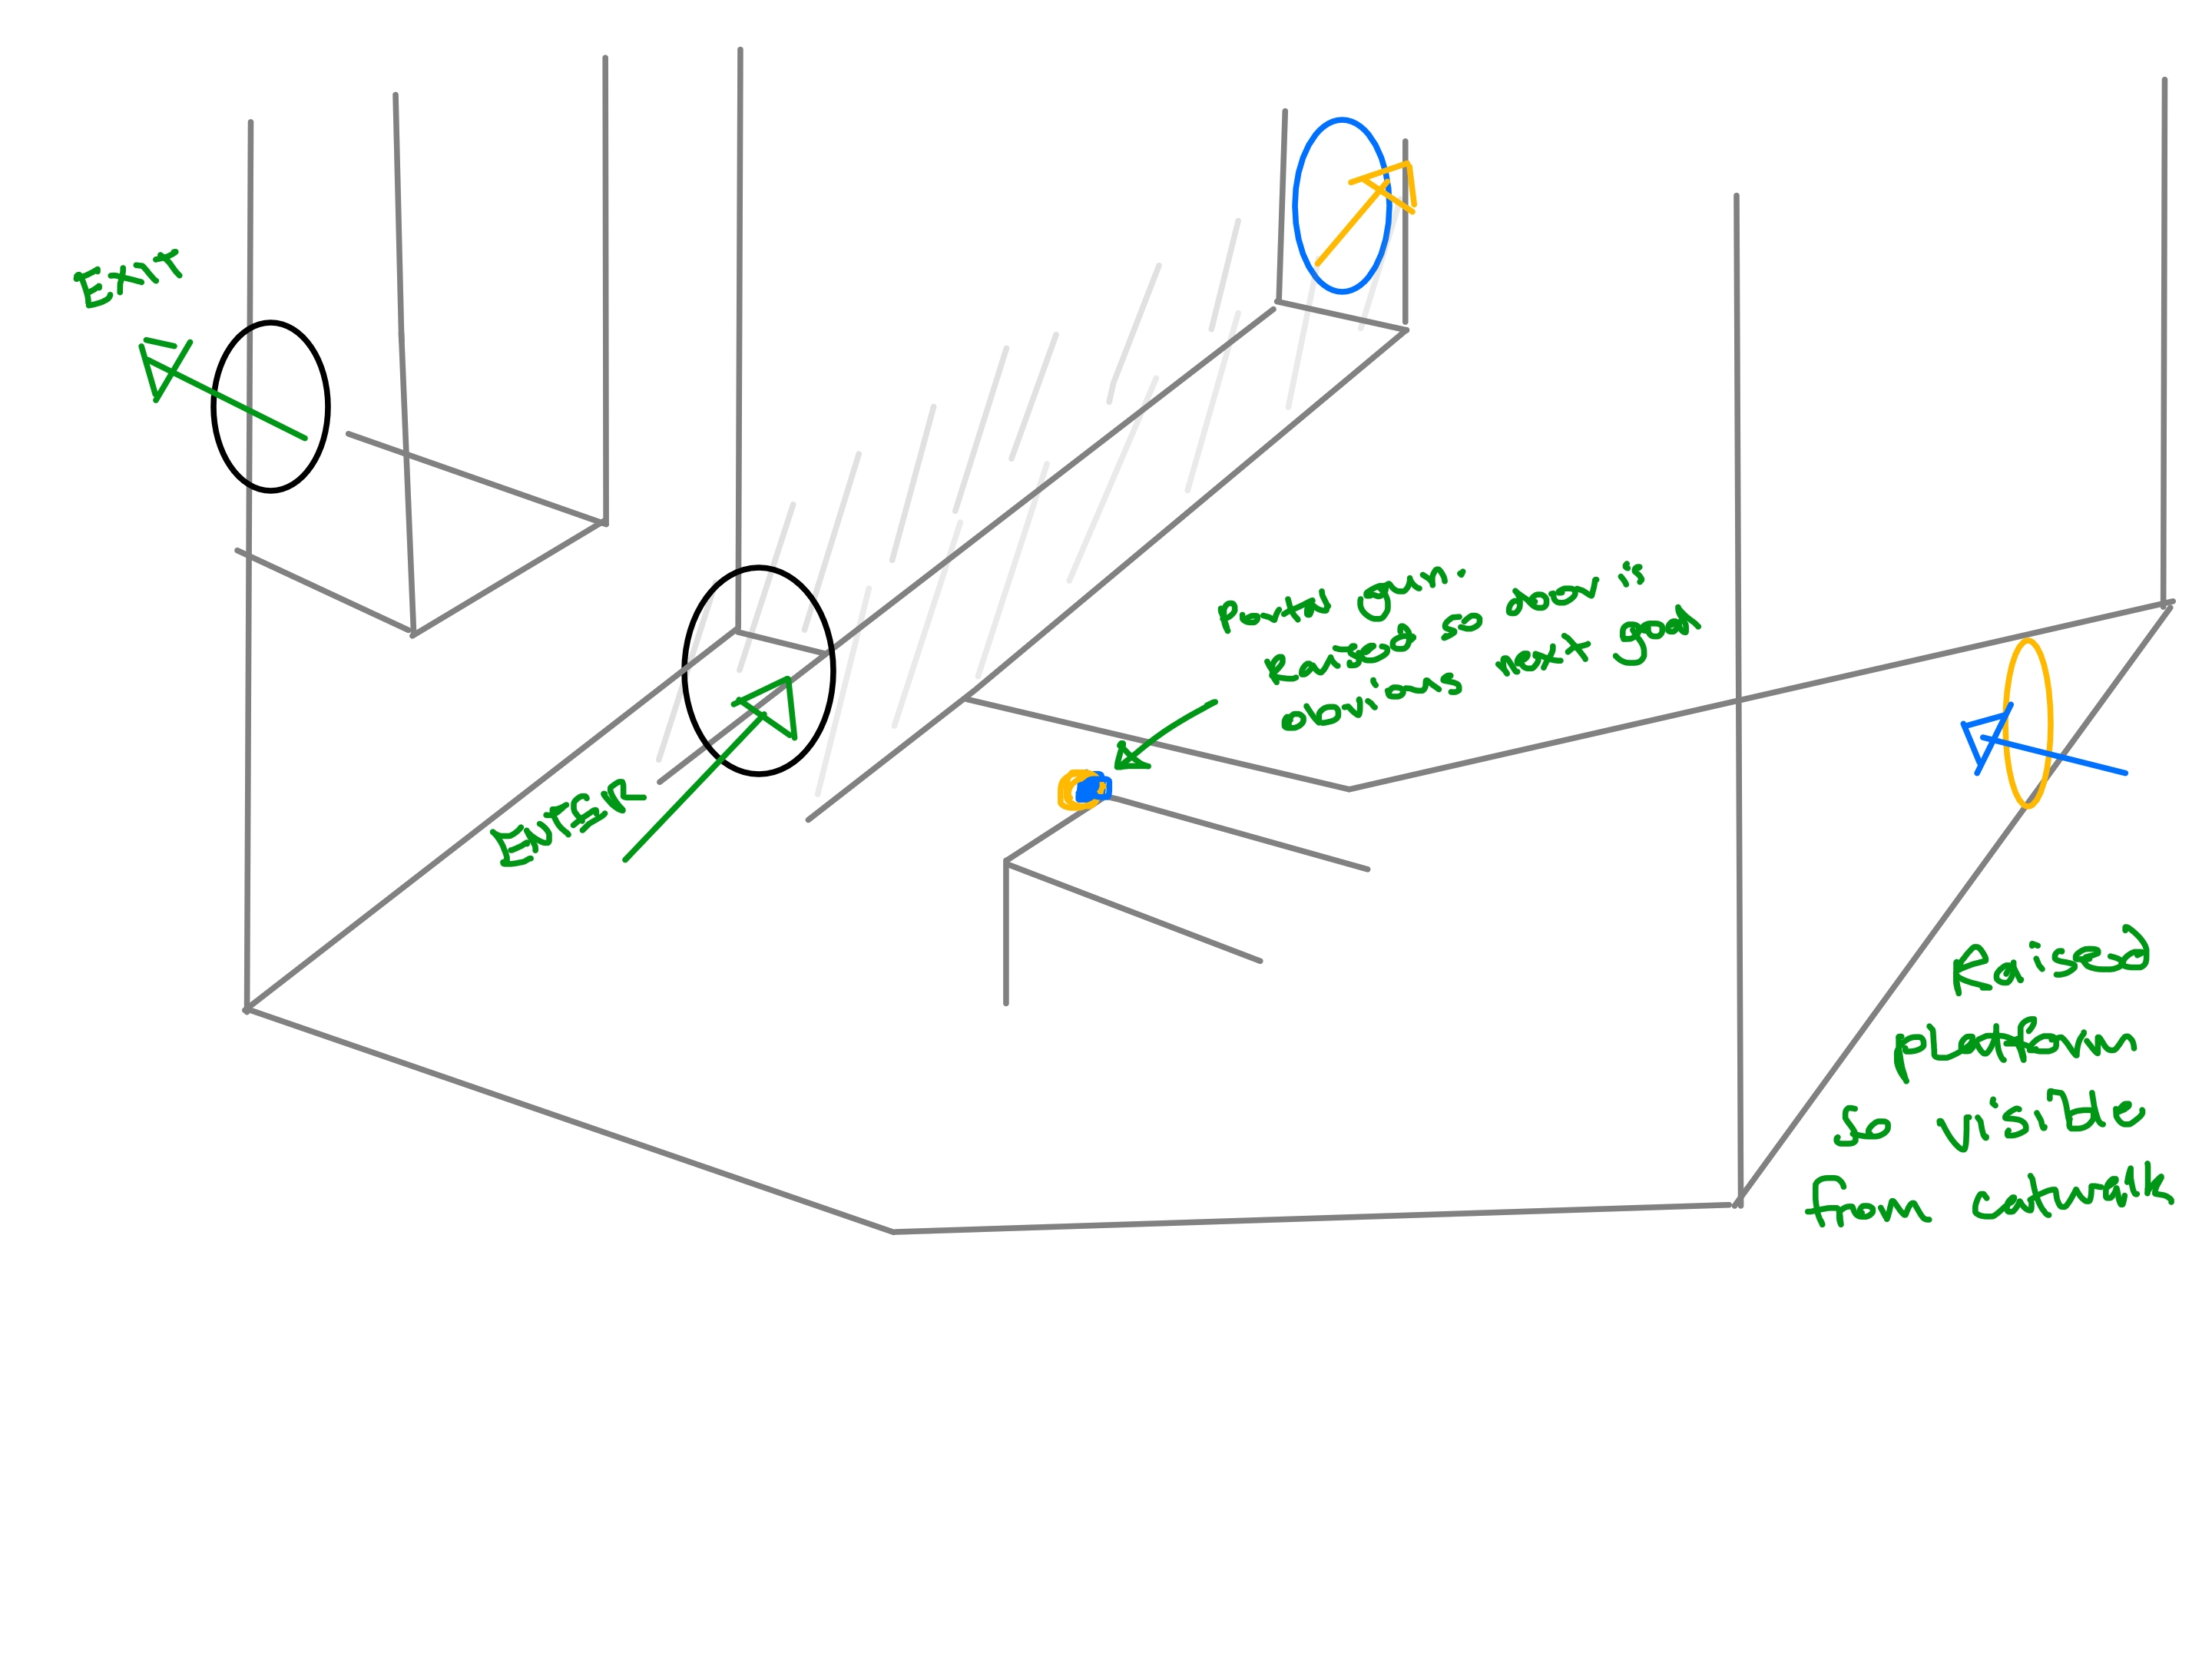 EXIT
Portal gun
Raised so door is
obvious next goal
Entrance
Raised
platform
so visible
from catwalk